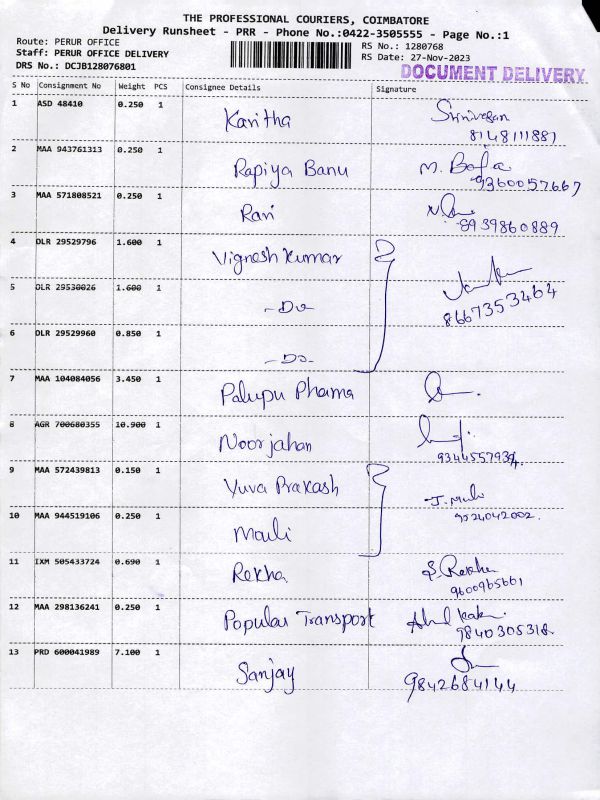 THE PROFESSIONAL COURIERS, COIMBATORE
Delivery Runsheet - PRR - Phone No.:0422-3505555 - Page No.:1
Route: PERUR OFFICE
Staff: PERUR OFFICE DELIVERY
DRS No.: DCJB128076801
RS No.: 1280768
RS Date: 27-Nov-2023
DOCUMENT DELIVERY
S No Consignment No Weight PCS Consignee Details Signature
1 ASD 48410 0.250 1 Kavitha Srinivasan
8148111881
2 MAA 943761313 0.250 1 Rapiya Banu M.
9360057667
3 MAA 571808521 0.250 1 Ravi
8939860889
4 DLR 29529796 1.600 1 Vignesh Kumar
5 DLR 29530026 1.600 1 -Do-
8667353464
6 DLR 29529960 0.850 1 -Do-
7 MAA 104084056 3.450 1 Palupu Pharma
8 AGR 700680355 10.900 1 Noorjahan
9344557934
9 MAA 572439813 0.150 1 Yuva Prakash J.
9524042002.
10 MAA 944519106 0.250 1 Mouli
11 IXM 505433724 0.690 1 Rekha S. Rekha
9600965661
12 MAA 298136241 0.250 1 Popular Transport
9840305318
13 PRD 600041989 7.100 1 Sanjay
9842684144